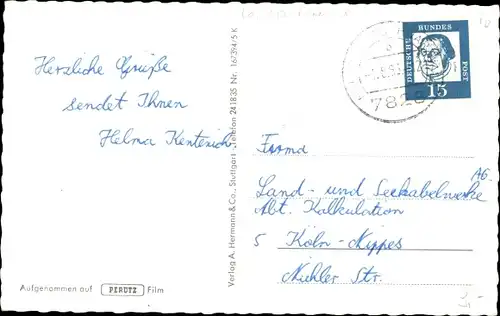 Herzliche Grüße
sendet Ihnen
Helma Kentenich
Aufgenommen auf PERUTZ Film
Verlag A. Hermann & Co., Stuttgart Telefon 241835 Nr. 16/394/5 K
DEUTSCHE BUNDES POST
15
782
Firma
Land- und Seekabelwerke AG.
Abt. Kalkulation
5 Köln-Nippes
Niehler Str.